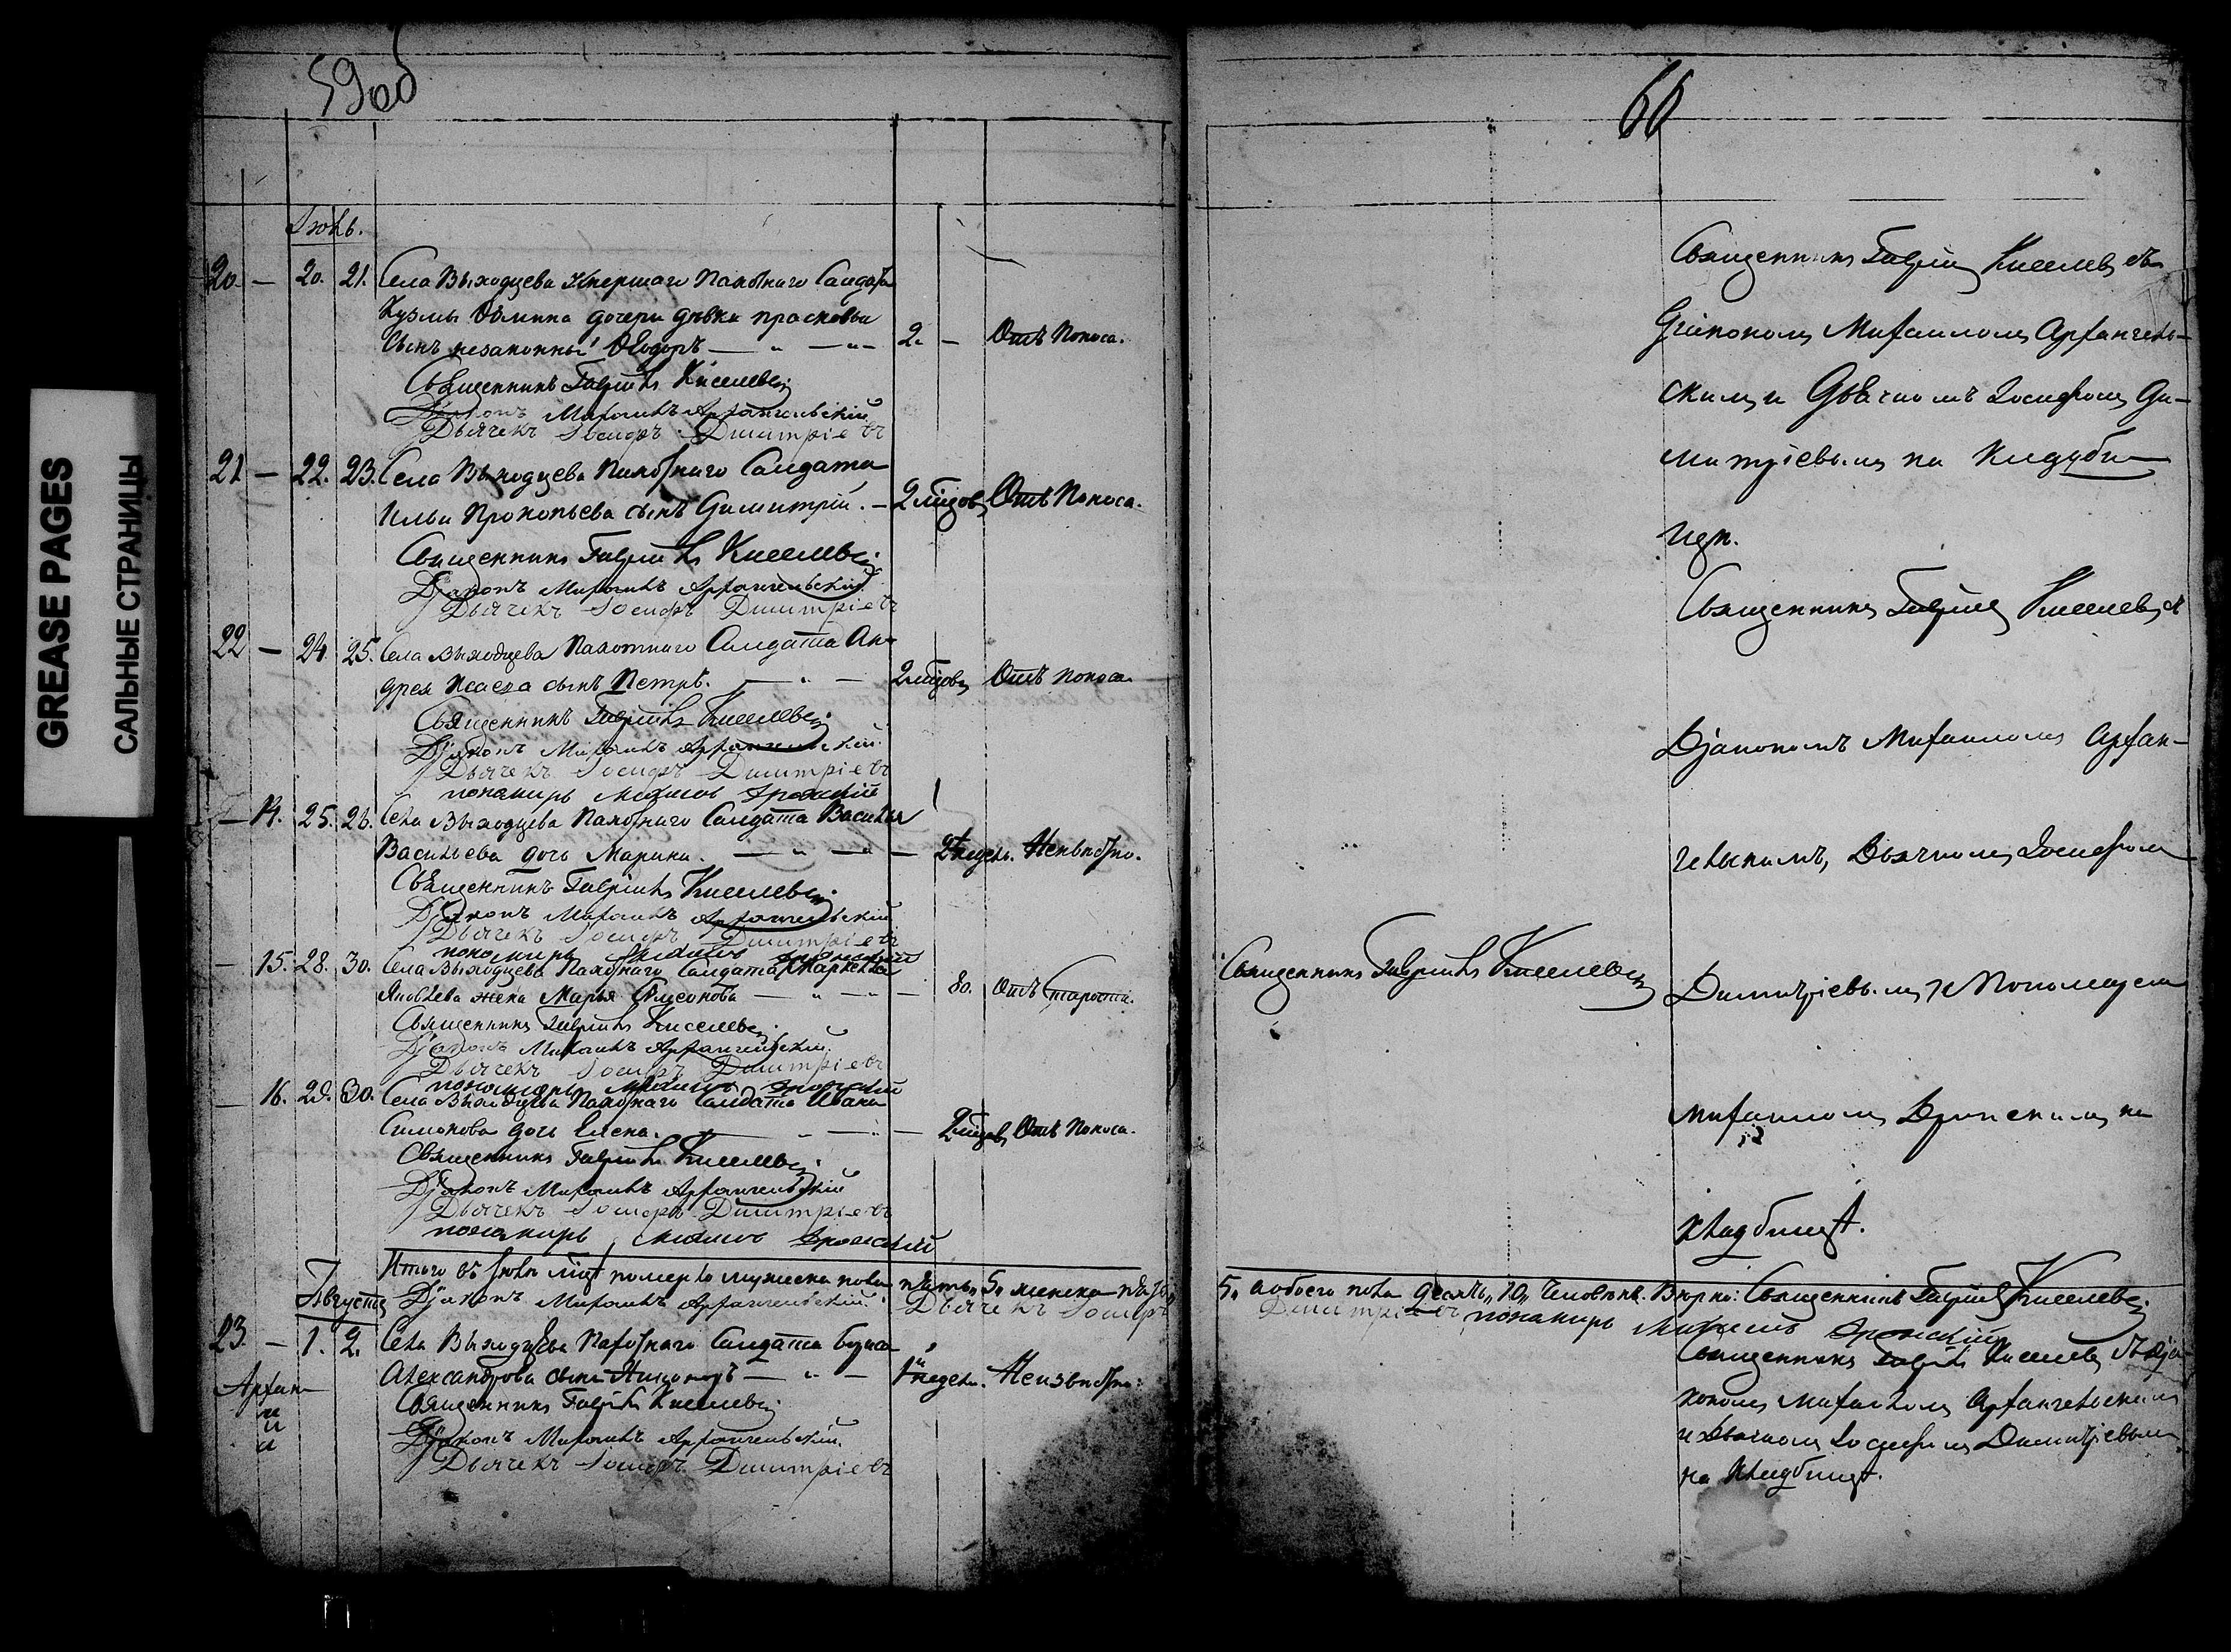 GREASE PAGES
САЛЬНЫЕ СТРАНИЦЫ
59об
Іюль.
20 — 20. 21. Села Выходцева умершаго Пахотнаго Салдата
Кузмы Ѳомина дочери дѣвки прасковьи
Сынъ незаконный Ѳеодоръ — „ — „ — 2. — Отъ Поноса.
Священникъ Гавріилъ Киселевъ
Діаконъ Михаилъ Архангельскій
Дьячекъ Іосифъ Димитріевъ
21 — 22. 23. Села Выходцева Пахотнаго Салдата
Ильи Прокопьева сынъ Димитрій. — 2 мѣсяцовъ Отъ Поноса.
Священникъ Гавріилъ Киселевъ
Діаконъ Михаилъ Архангельскій
Дьячекъ Іосифъ Димитріевъ
22 — 24 25. Села Выходцева Пахотнаго Салдата Ан-
дрея Исаева сынъ Петръ. — „ — 2 мѣсяцовъ Отъ поноса
Священникъ Гавріилъ Киселевъ
Діаконъ Михаилъ Архангельскій
Дьячекъ Іосифъ Димитріевъ
понамирь
— 14. 25. 26. Села Выходцева Пахотнаго Салдата Василья
Васильева дочь Марина. — „ — „ — недель. Неизвѣстно.
Священникъ Гавріилъ Киселевъ
Діаконъ Михаилъ Архангельскій
Дьячекъ Іосифъ Димитріевъ
понамирь
— 15. 28. 30. Села Выходцева Пахотнаго Салдата
Яковлева жена Марья — „ — „ — 80. Отъ старости.
Священникъ Гавріилъ Киселевъ
Діаконъ Михаилъ Архангельскій
Дьячекъ Іосифъ Димитріевъ
понамирь
— 16. 29. 30. Села Выходцева Пахотнаго Салдата Ивана
Симонова дочь Елена. — „ — „ — 2 мѣсяцовъ Отъ Поноса.
Священникъ Гавріилъ Киселевъ
Діаконъ Михаилъ Архангельскій
Дьячекъ Іосифъ Димитріевъ
понамирь
Итого въ Іюлѣ померло мужеска пола пять „5„ женска пять
Августъ Діаконъ Михаилъ Архангельскій. Дьячекъ Іосифъ
23. — 1. 2. Села Выходцева Пахотнаго Салдата
Александрова сынъ — „ — недель. Неизвѣстно.
Священникъ Гавріилъ Киселевъ
Діаконъ Михаилъ Архангельскій.
Дьячекъ Іосифъ Димитріевъ
60
Священникъ Гавріилъ Киселевъ съ
Діакономъ Михаиломъ Архангель-
скимъ и Дьячкомъ Іосифомъ Ди-
митріевымъ на кладби-
щѣ.
Священникъ Гавріилъ Киселевъ съ
Діакономъ Михаиломъ Архан-
гельскимъ, Дьячкомъ Іосифомъ
Священникъ Гавріилъ Киселевъ
Димитріевымъ и Пономаремъ
Михаиломъ на
кладбищѣ.
5„ а обоего пола десять „10„ человѣкъ. Вѣрно: Священникъ Гавріилъ Киселевъ
Димитріевъ понамирь
Священникъ Гавріилъ Киселевъ съ Діа-
кономъ Михаиломъ Архангельскимъ
и Дьячкомъ Іосифомъ Димитріевымъ
на кладбищѣ.